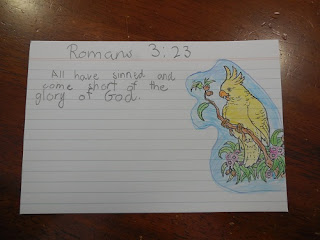 Romans 3:23
All have sinned and
come short of the
glory of God.